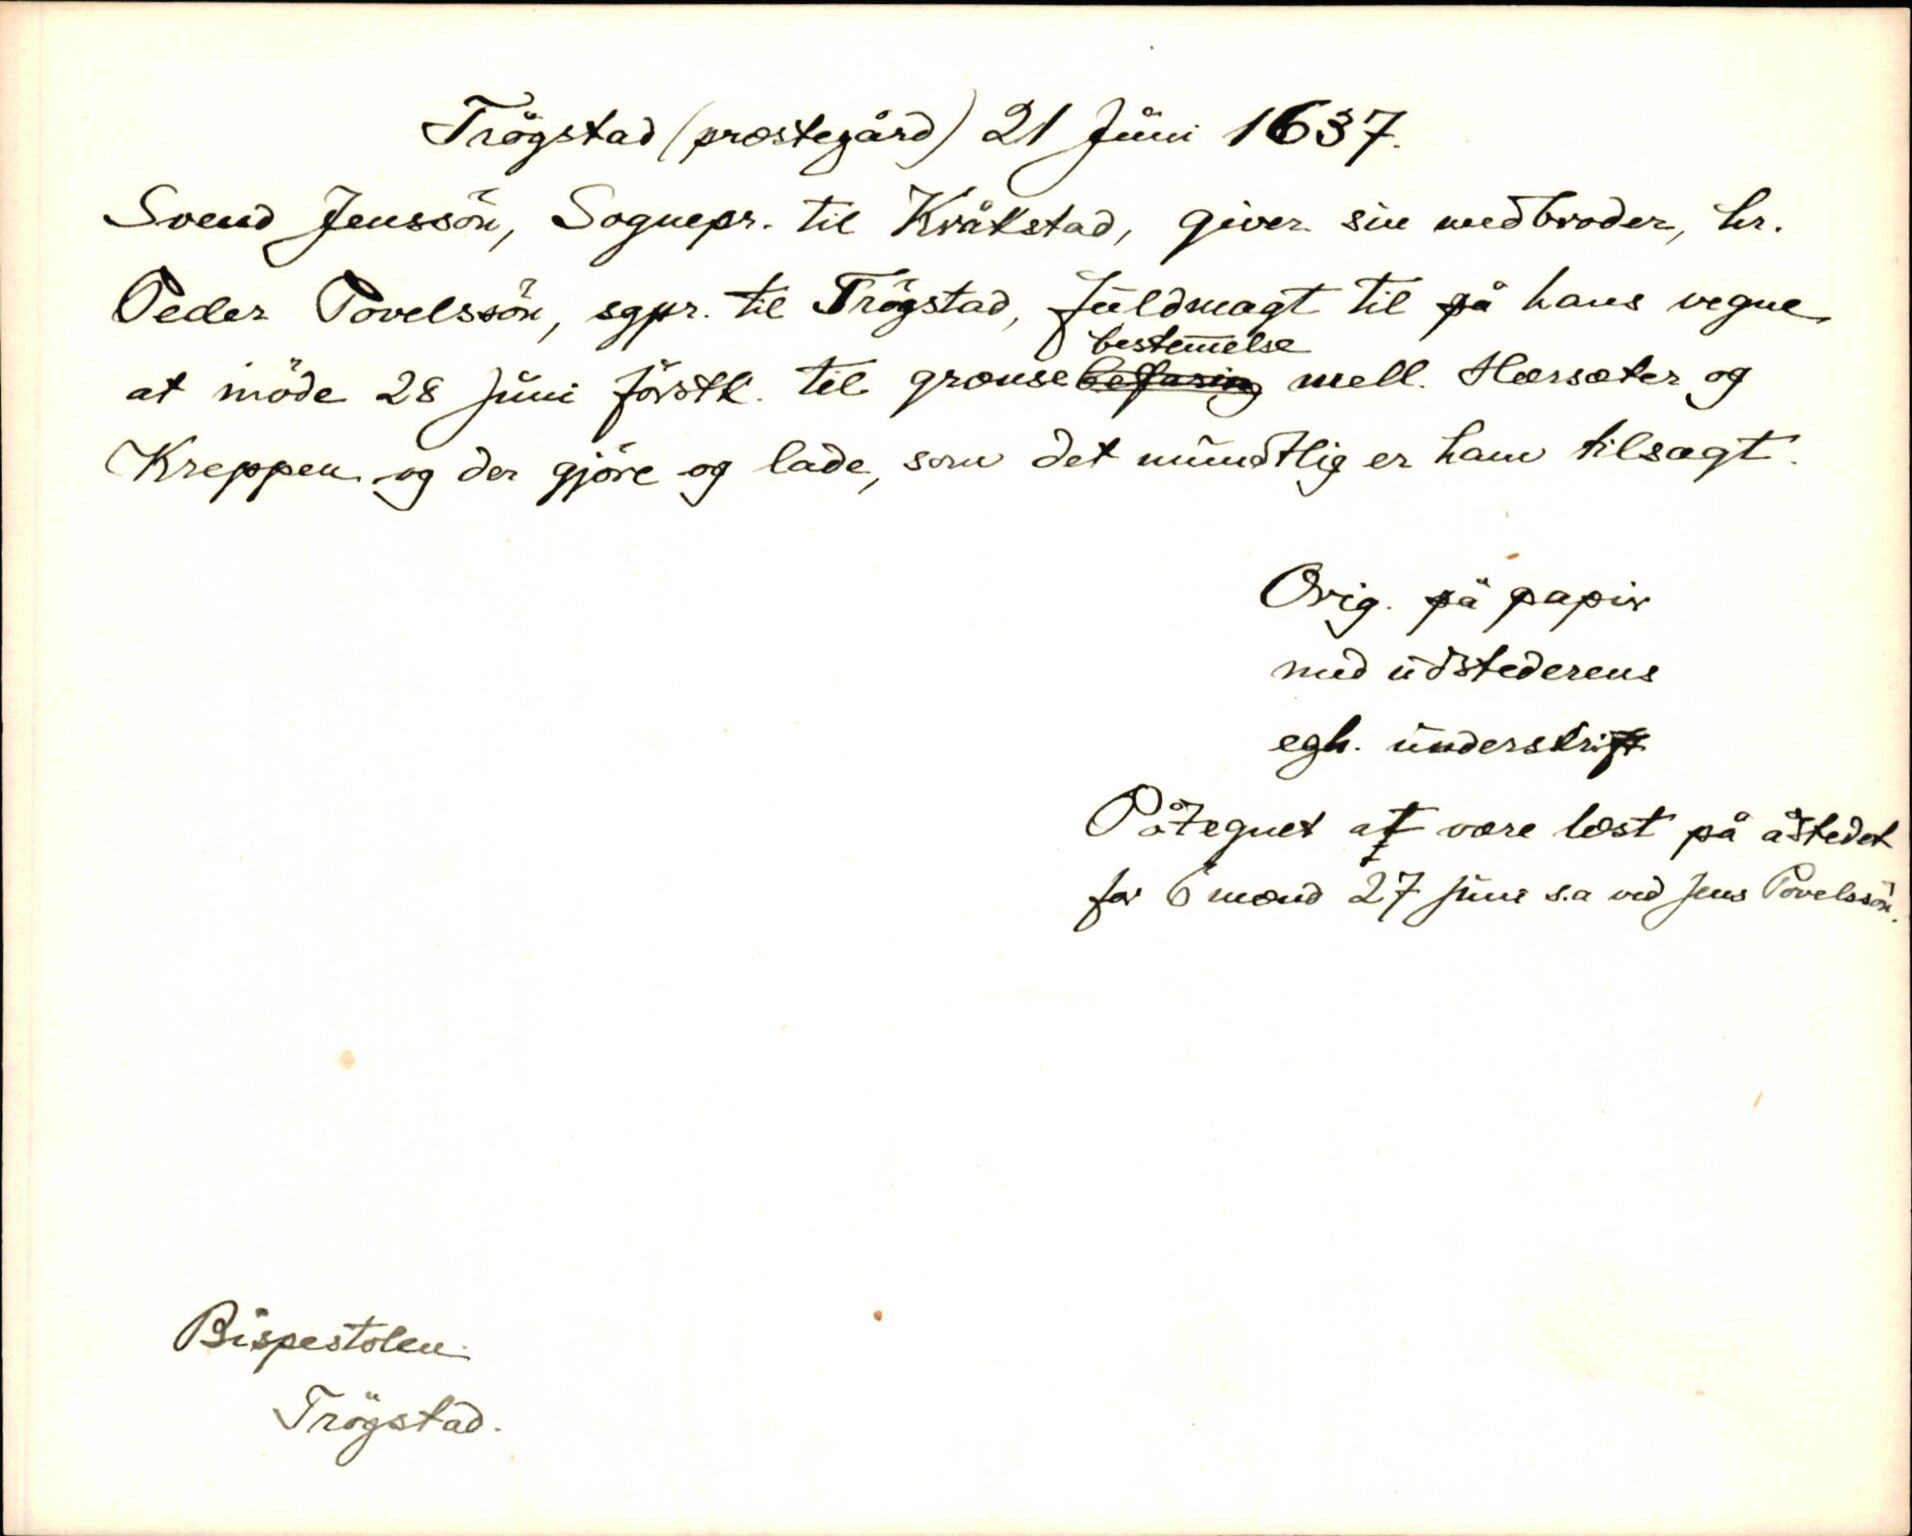 Trögstad (præstegård) 21 Juni 1637.
Svend Jenssön, Sognepr. til Kråkstad, giver sin medbroder, hr.
Peder Povelssön, sgpr. til Trögstad, fuldmagt til på hans vegne
at möde 28 Juni förstk. til grænsebestemmelse mell. Hærsæter og
Kreppen og der gjöre og lade, som det mundtlig er ham tilsagt.
Orig. på papir
med udstederens
egh. underskrift
Påtegnet at være læst på åstedet
for 6 mænd 27 juni s.a ved Jens Povelssön.
Bispestolen.
Trögstad.